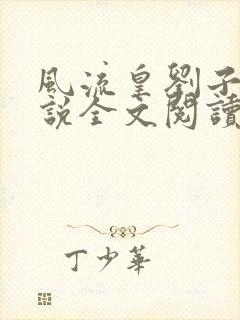 風流皇劉子
說全文閱讀
丁少華